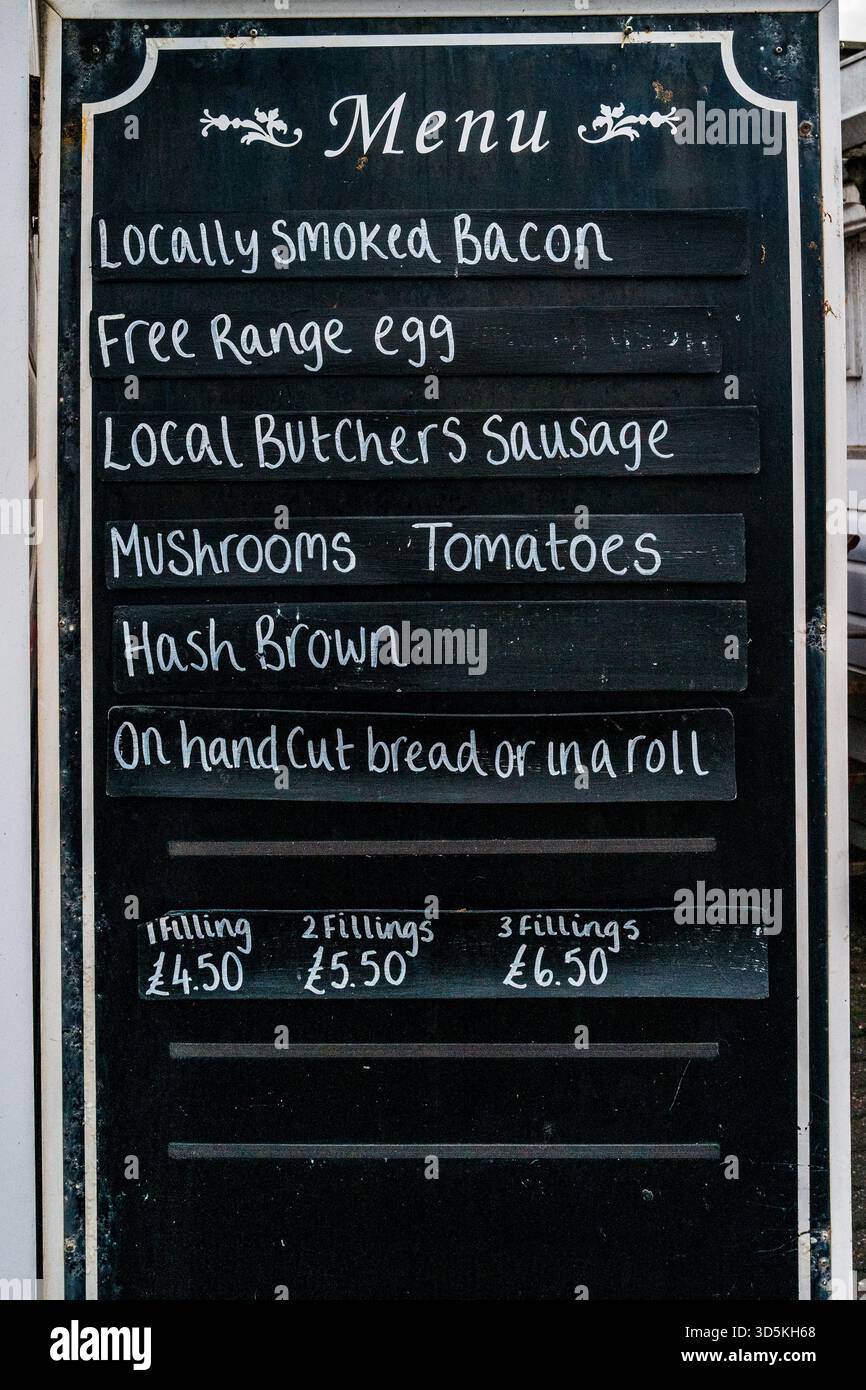 Menu
Locally smoked Bacon
Free Range egg
Local Butchers Sausage
Mushrooms Tomatoes
Hash Brown
On hand cut bread or in a roll
1 Filling 2 Fillings 3 Fillings
£4.50 £5.50 £6.50
alamy
Image ID: 3D5KH68
www.alamy.com